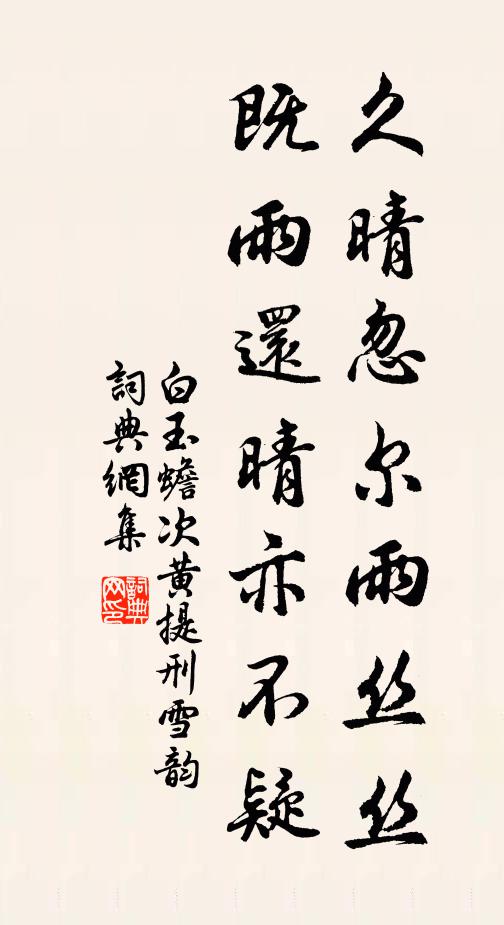 久晴忽尔雨丝丝
既雨還晴亦不疑
白玉蟾次黄提刑雪韵
詞典網集
詞典网印